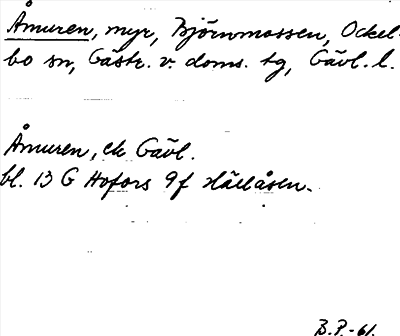 Åmuren, myr, Björnmossen, Ockel-
bo sn, Gästr. v. doms. tg, Gävl. l.
Åmuren, ek Gävl.
bl. 13 G Hofors 9f Hällåsen.
B.P.-61.